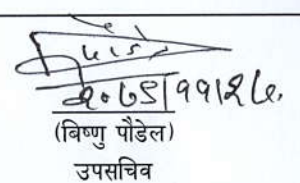 २०७९।११।२८
(बिष्णु पौडेल)
उपसचिव